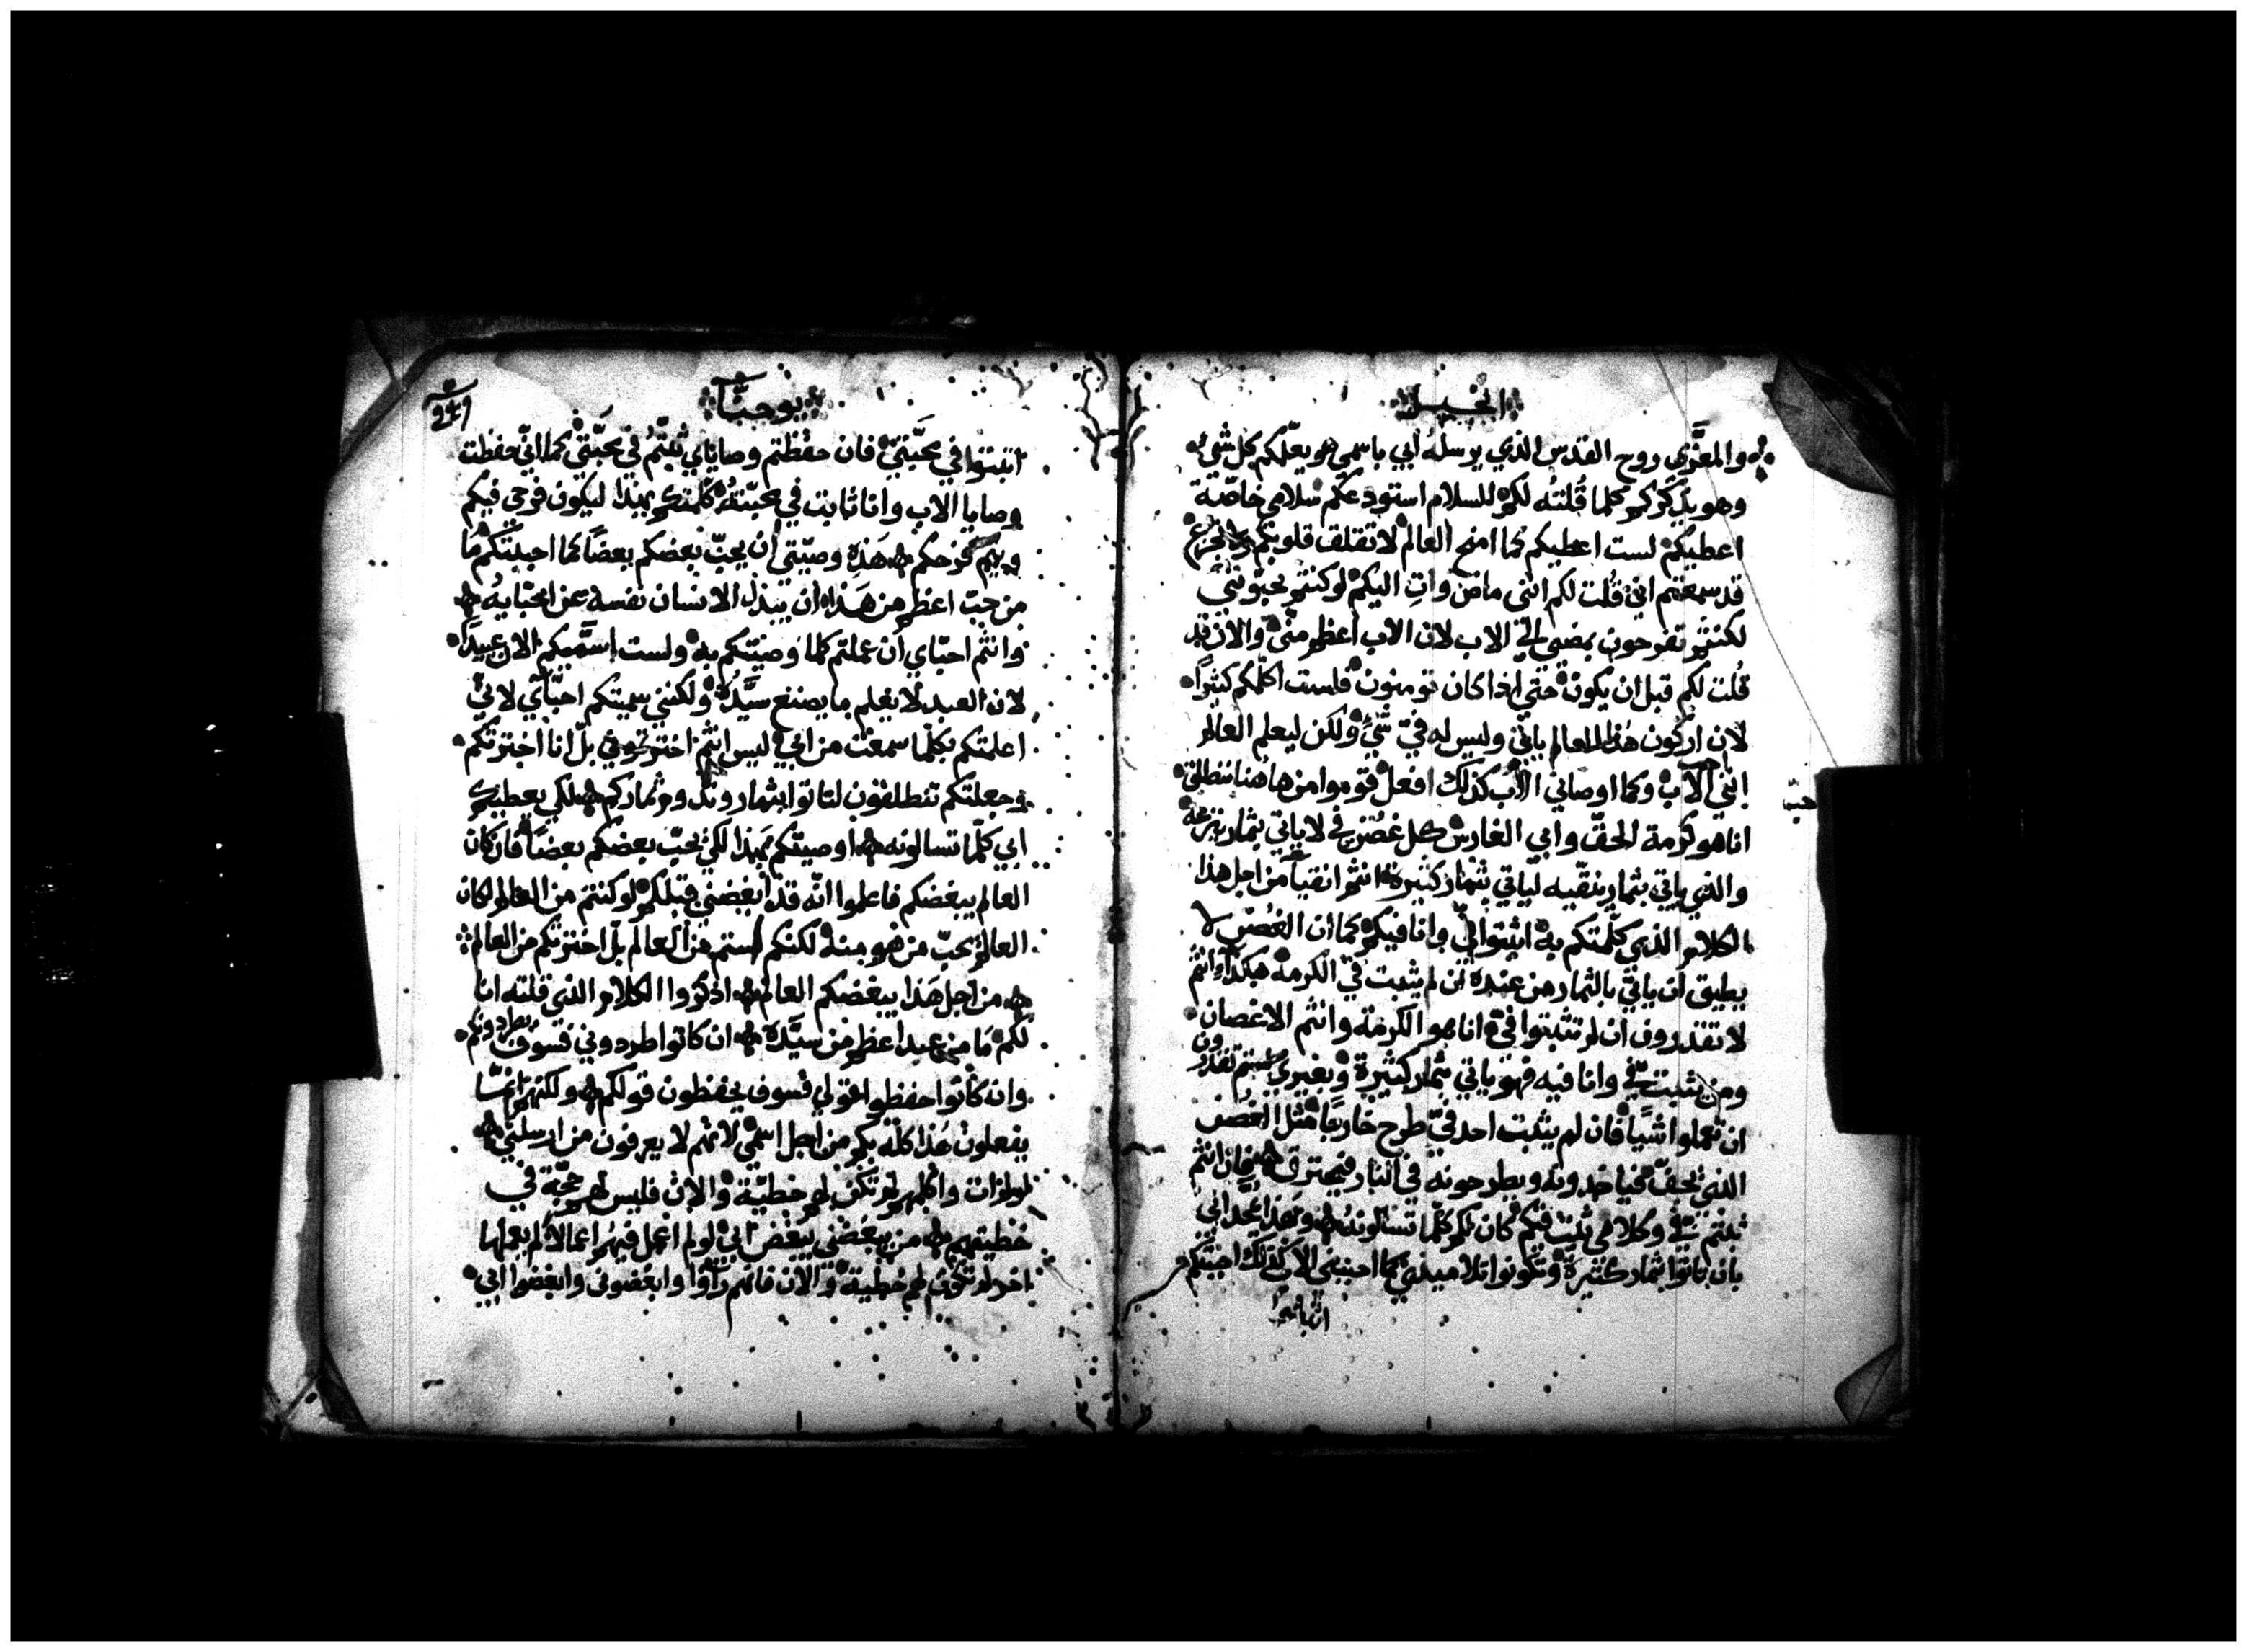 انجيل
والمعزّي روح القدس الذي يرسله ابي باسمي هو يعلّمكم كل شي
وهو يذكركم كلما قُلتُه لكم السلام استودعكم سلامي خاصّة
اعطيكم لست اعطيكم كما امنح العالم لا تقلق قلوبكم ولا تجزع
قد سمعتم اني قلت لكم انني ماض وآتِ اليكم لو كنتم تحبّونني
لكنتم تفرحون بمضيي الي الاب لان الاب اعظم منّي والان قد
قُلت لكم قبل ان يكون حتي اذا كان تومنون فلست اكلّمكم كثيراً
لان اركون هذا العالم ياتي وليس له فيّ شيٌ ولكن ليعلم العالم
انني احب الاب وكما اوصاني الاب كذلك افعل قوموا من هاهنا ننطلق
انا هو كرمة الحقّ وابي الغارس كل غصن فيّ لا ياتي بثمار ينزعه
والذي ياتي بثمار ينقّيه لياتي بثمار كثيرة انتم انقياً من اجل هذا
الكلام الذي كلّمتكم به اثبتوا فيّ وانا فيكم كما ان الغُصن لا
يطيق ان ياتي بالثمار من عنده ان لم يثبت في الكرمة هكذا وانتم
لا تقدرون ان لم تثبتوا فيّ انا هو الكرمة وانتم الاغصان
ومن يثبت فيّ وانا فيه فهو ياتي بثمار كثيرة وبغيري لستم تقدرون
ان تعملوا شيّاً فان لم يثبت احد فيّ طرح خارجاً مثل الغُصن
الذي يجفّ فياخدونه ويطرحونه في النار فيحترق فان انتم
ثبتم فيّ وكلامي ثبت فيكم كان لكم كلّما تسالونه وبهذا يمجد ابي
بان تاتوا بثمار كثيرة وتكونوا تلاميذي كما احبني الاب كذلك احببتكم
اثبتوا
يوحنّا
٢٤٩
اثبتوا في محبّتي فان حفظتم وصاياي ثبتّم في محبّتي كما انّي حفظت
وصايا الاب وانا ثابت في محبّته كلّمتكم بهذا ليكون فرحي فيكم
ويتم فرحكم هذه وصيّتي ان يحبّ بعضكم بعضاً كما احببتكم ما
من حبّ اعظم من هذا ان يبذل الانسان نفسه عن احبّايه
وانتم احبّاي ان عملتم كلما وصيّتكم به ولست اسمّيكم الان عبيداً
لان العبد لا يعلم ما يصنع سيّده ولكنني سميتكم احبّاي لاني
اعلمتكم بكلّما سمعت من ابي ليس انتم اخترتموني بل انا اخترتكم
وجعلتكم تنطلقون لتاتوا بثمار وتدوم ثماركم لكي يعطيكم
ابي كلّما تسالونه اوصيتكم بهذا لكي يحبّ بعضكم بعضاً فان كان
العالم يبغضكم فاعلموا انّه قد ابغضني قبلكم لو كنتم من العالم لكان
العالم يحبّ من هو منه لكنكم لستم من العالم بل اخترتكم من العالم
من اجل هذا يبغضكم العالم اذكروا الكلام الذي قلته انا
لكم ما من عبد اعظم من سيّده ان كانوا طردوني فسوف يطردونكم
وان كانوا حفظوا قولي فسوف يحفظون قولكم ولكنهم انمّا
يفعلون هذا كلّه بكم من اجل اسمي لانهم لا يعرفون من ارسلني
لو لم ات واكلمهم لم تكن لهم خطيّة والان فليس لهم حجّة في
خطيتهم من يبغضني يبغض ابي لو لم اعمل فيهم اعمالا لم يعملها
اخر لم تكن لهم خطية والان فانهم راوا وابغضوني وابغضوا ابي